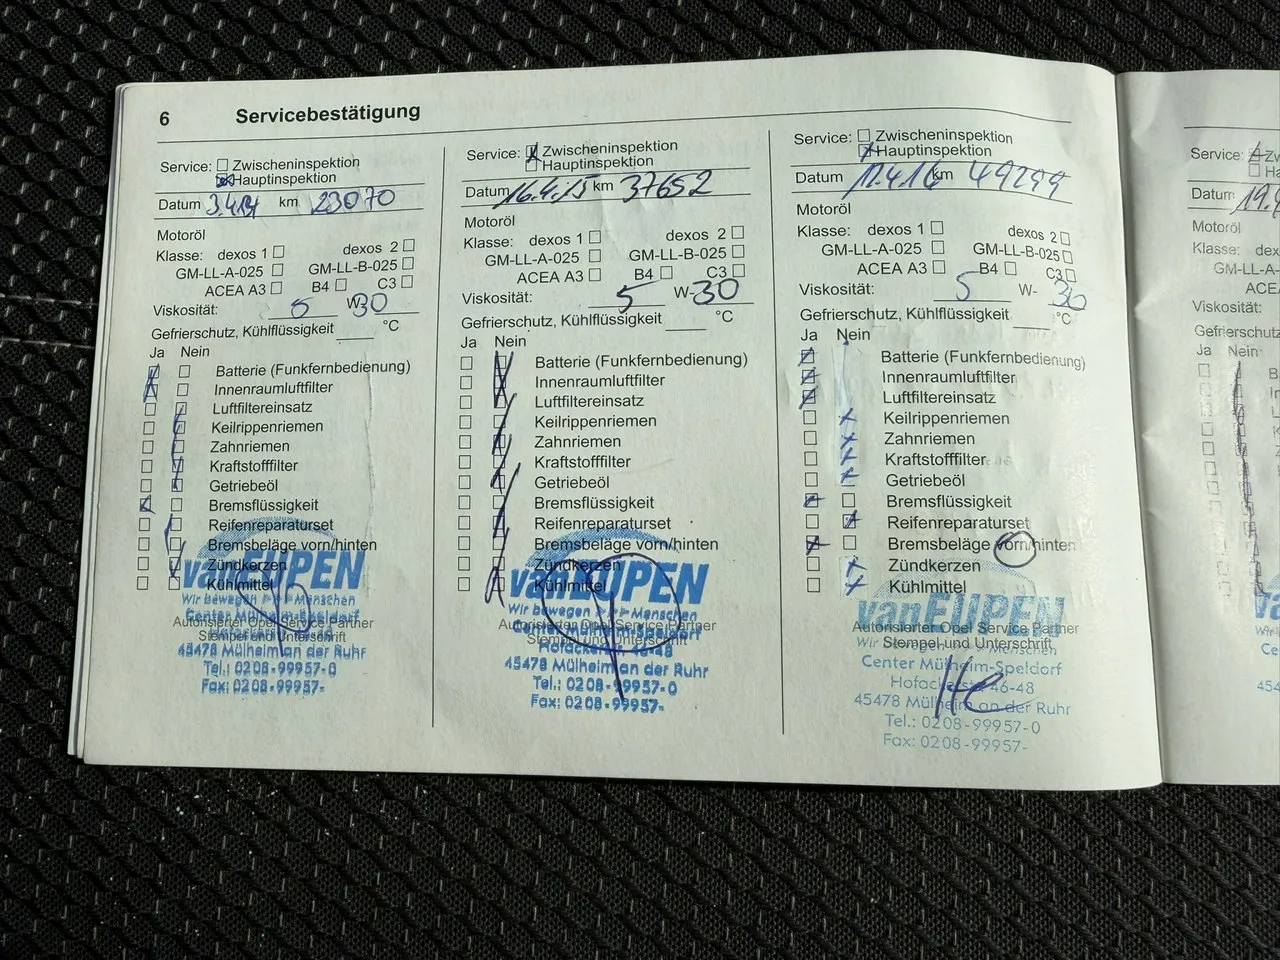 6 Servicebestätigung
Service: Zwischeninspektion
Hauptinspektion
Datum 3.4.14 km 23070
Motoröl
Klasse: dexos 1 dexos 2
GM-LL-A-025 GM-LL-B-025
ACEA A3 B4 C3
Viskosität: 5 W-30
Gefrierschutz, Kühlflüssigkeit °C
Ja Nein
Batterie (Funkfernbedienung)
Innenraumluftfilter
Luftfiltereinsatz
Keilrippenriemen
Zahnriemen
Kraftstofffilter
Getriebeöl
Bremsflüssigkeit
Reifenreparaturset
Bremsbeläge vorn/hinten
Zündkerzen
Kühlmittel
vanEUPEN
Wir bewegen Menschen
Autorisierter Opel Service Partner
Center Mülheim-Speldorf
Stempel und Unterschrift
45478 Mülheim an der Ruhr
Tel.: 0208-99957-0
Fax: 0208-99957-
Service: Zwischeninspektion
Hauptinspektion
Datum 16.4.15 km 37652
Motoröl
Klasse: dexos 1 dexos 2
GM-LL-A-025 GM-LL-B-025
ACEA A3 B4 C3
Viskosität: 5 W-30
Gefrierschutz, Kühlflüssigkeit °C
Ja Nein
Batterie (Funkfernbedienung)
Innenraumluftfilter
Luftfiltereinsatz
Keilrippenriemen
Zahnriemen
Kraftstofffilter
Getriebeöl
Bremsflüssigkeit
Reifenreparaturset
Bremsbeläge vorn/hinten
Zündkerzen
Kühlmittel
vanEUPEN
Wir bewegen Menschen
Autorisierter Opel Service Partner
Center Mülheim-Speldorf
Stempel und Unterschrift
Hofackerstr. 46-48
45478 Mülheim an der Ruhr
Tel.: 0208-99957-0
Fax: 0208-99957-
Service: Zwischeninspektion
Hauptinspektion
Datum 11.4.16 km 49299
Motoröl
Klasse: dexos 1 dexos 2
GM-LL-A-025 GM-LL-B-025
ACEA A3 B4 C3
Viskosität: 5 W-30
Gefrierschutz, Kühlflüssigkeit °C
Ja Nein
Batterie (Funkfernbedienung)
Innenraumluftfilter
Luftfiltereinsatz
Keilrippenriemen
Zahnriemen
Kraftstofffilter
Getriebeöl
Bremsflüssigkeit
Reifenreparaturset
Bremsbeläge vorn/hinten
Zündkerzen
Kühlmittel
vanEUPEN
Autorisierter Opel Service Partner
Wir bewegen Menschen
Stempel und Unterschrift
Center Mülheim-Speldorf
Hofackerstr. 46-48
45478 Mülheim an der Ruhr
Tel.: 0208-99957-0
Fax: 0208-99957-
Service: Zw
Ha
Datum 19.
Motoröl
Klasse: dexo
GM-LL-A-0
ACEA
Viskosität:
Gefrierschutz
Ja Nein